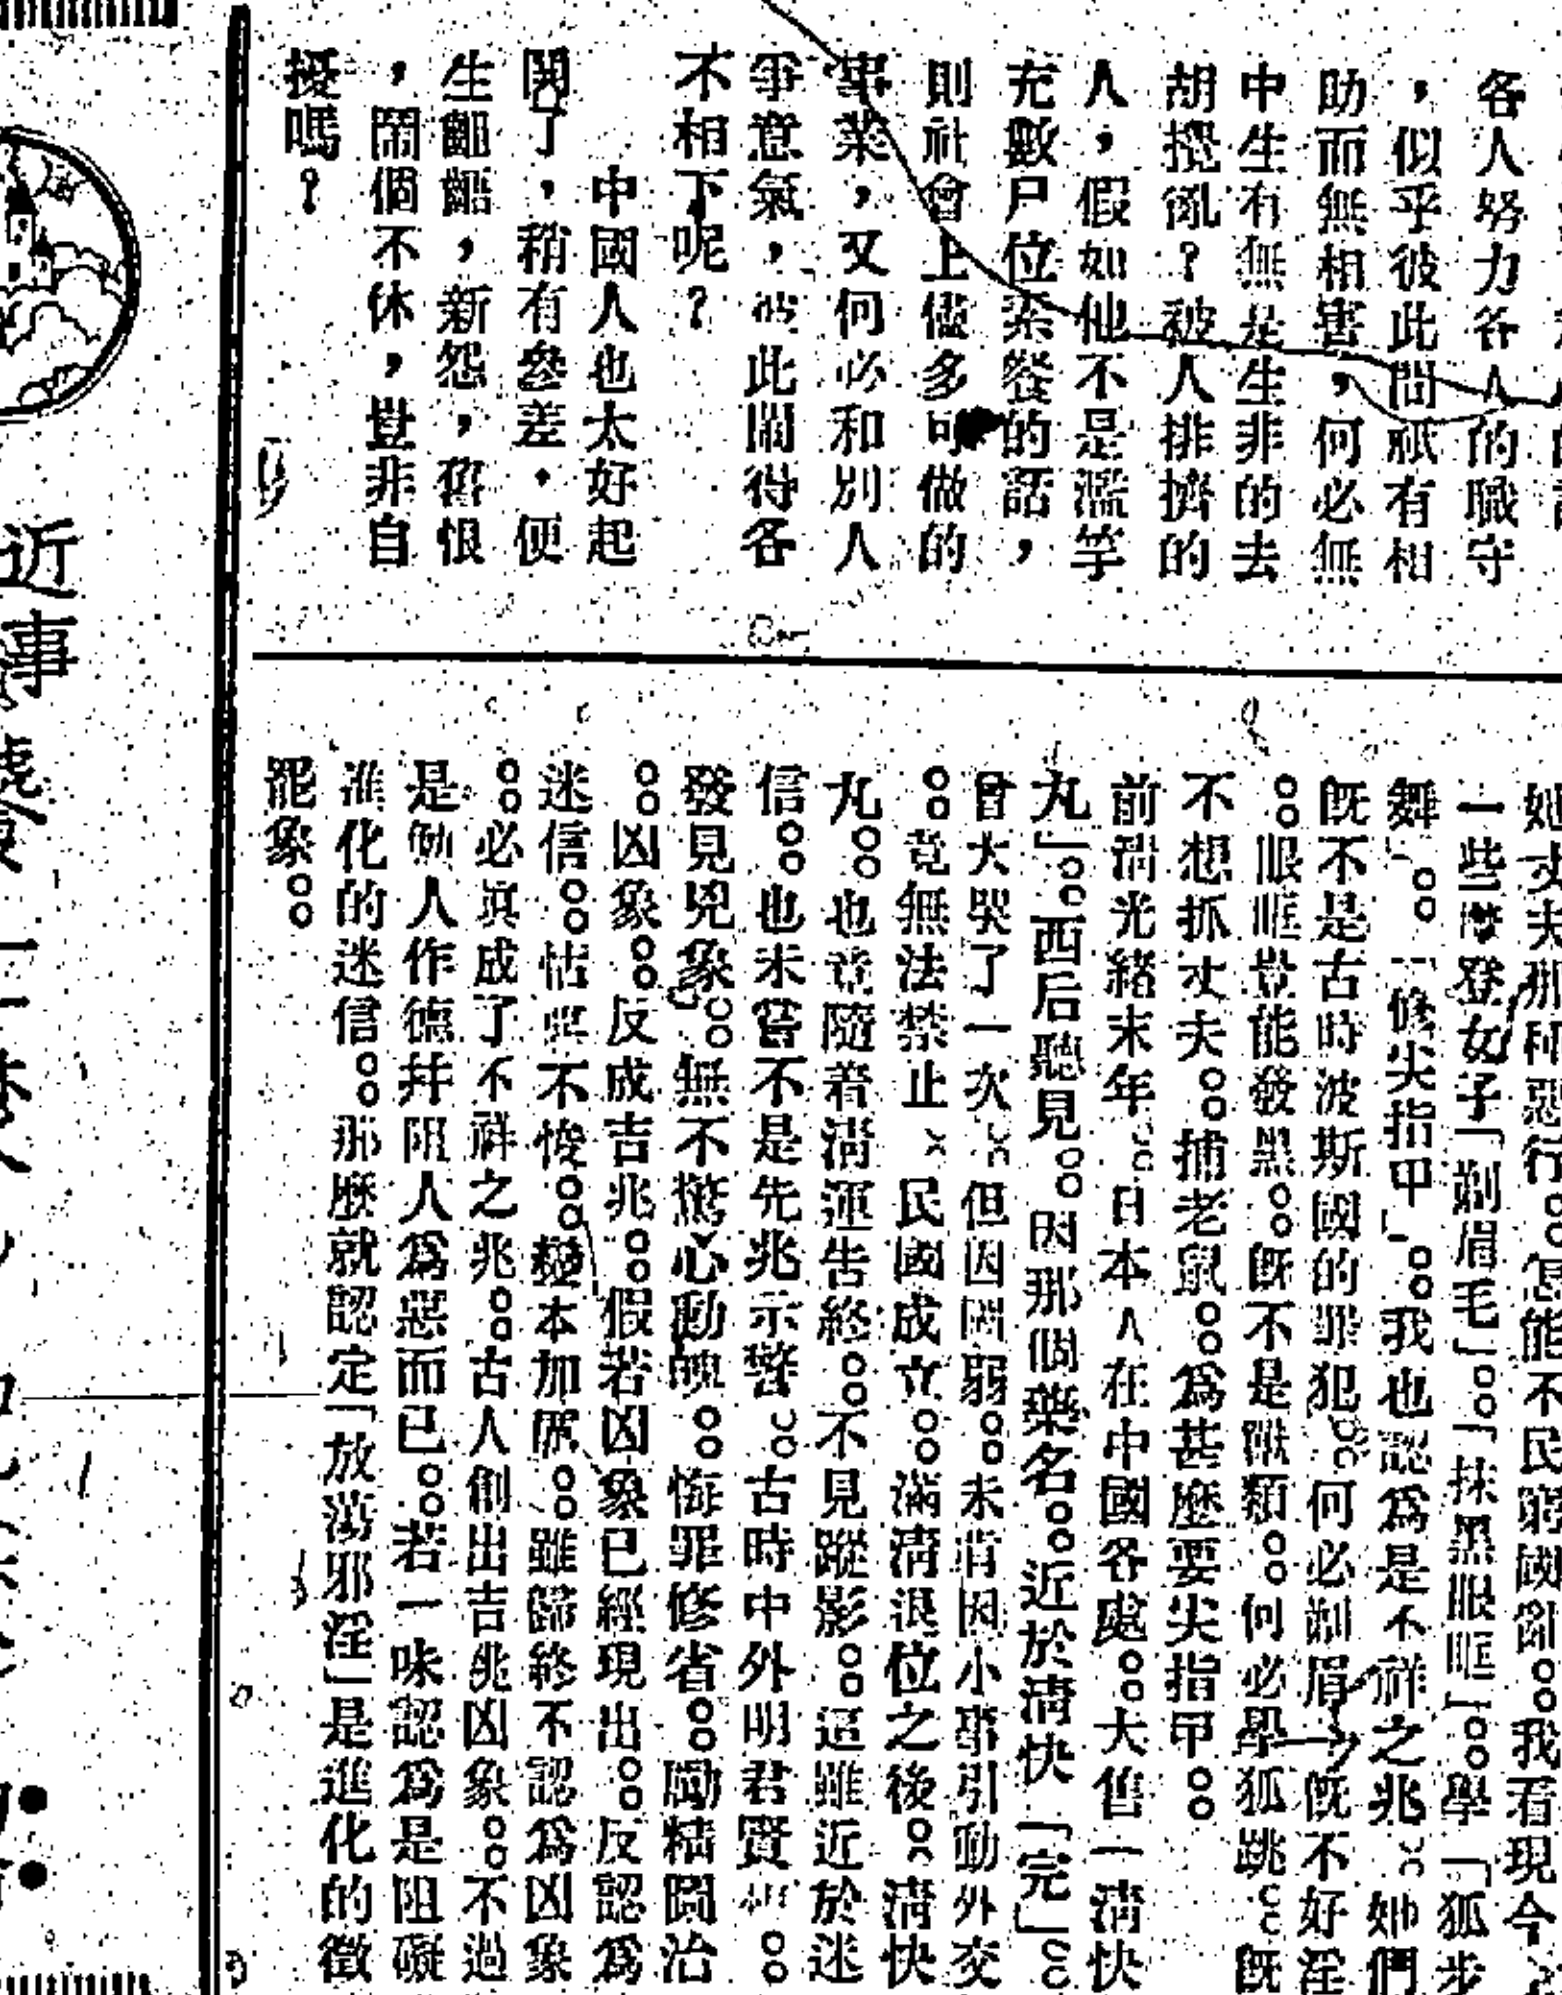 各人努力各人的職守
，似乎彼此間祇有相
助而無相害，何必無
中生有無是生非的去
胡攪亂？被人排擠的
人，假如他不是濫竽
充數尸位素餐的話，
則社會上儘多可做的
事業，又何必和別人
爭意氣，彼此鬧得各
不相下呢？
中國人也太好起
鬨了，稍有參差，便
生齟齬，新怨，舊恨
，鬧個不休，豈非自
擾嗎？
她丈夫那種惡行。。怎能不民窮國亂。。我看現今
一些摩登女子「剃眉毛」。。「抹黑眼眶」。。學「狐步
舞」。。「修尖指甲」。。我也認爲是不祥之兆。。她們
旣不是古時波斯國的罪犯。。何必剃眉。。旣不好淫
。。眼眶豈能發黑。。旣不是獸類。。何必學狐跳。。旣
不想抓丈夫。。捕老鼠。。爲甚麽要尖指甲。。
前清光緒末年。。日本人在中國各處。。大售「清快
丸」。。西后聽見。。因那個藥名。。近於清快「完」。。
曾大哭了一次。。但因國弱。。未肯因小事引動外交
。。竟無法禁止。。民國成立。。滿清退位之後。。清快
丸。。也竟隨着清運告終。。不見蹤影。。這雖近於迷
信。。也未嘗不是先兆示警。。古時中外明君賢相。。
發見兇象。。無不驚心動魄。。悔罪修省。。勵精圖治
。。凶象。。反成吉兆。。假若凶象已經現出。。反認爲
迷信。。怙惡不悛。。變本加厲。。雖歸終不認爲凶象
。。必眞成了不祥之兆。。古人創出吉兆凶象。。不過
是勉人作德幷阻人爲惡而已。。若一味認爲是阻礙
進化的迷信。。那麽就認定「放蕩邪淫」是進化的徵
象。。
近事